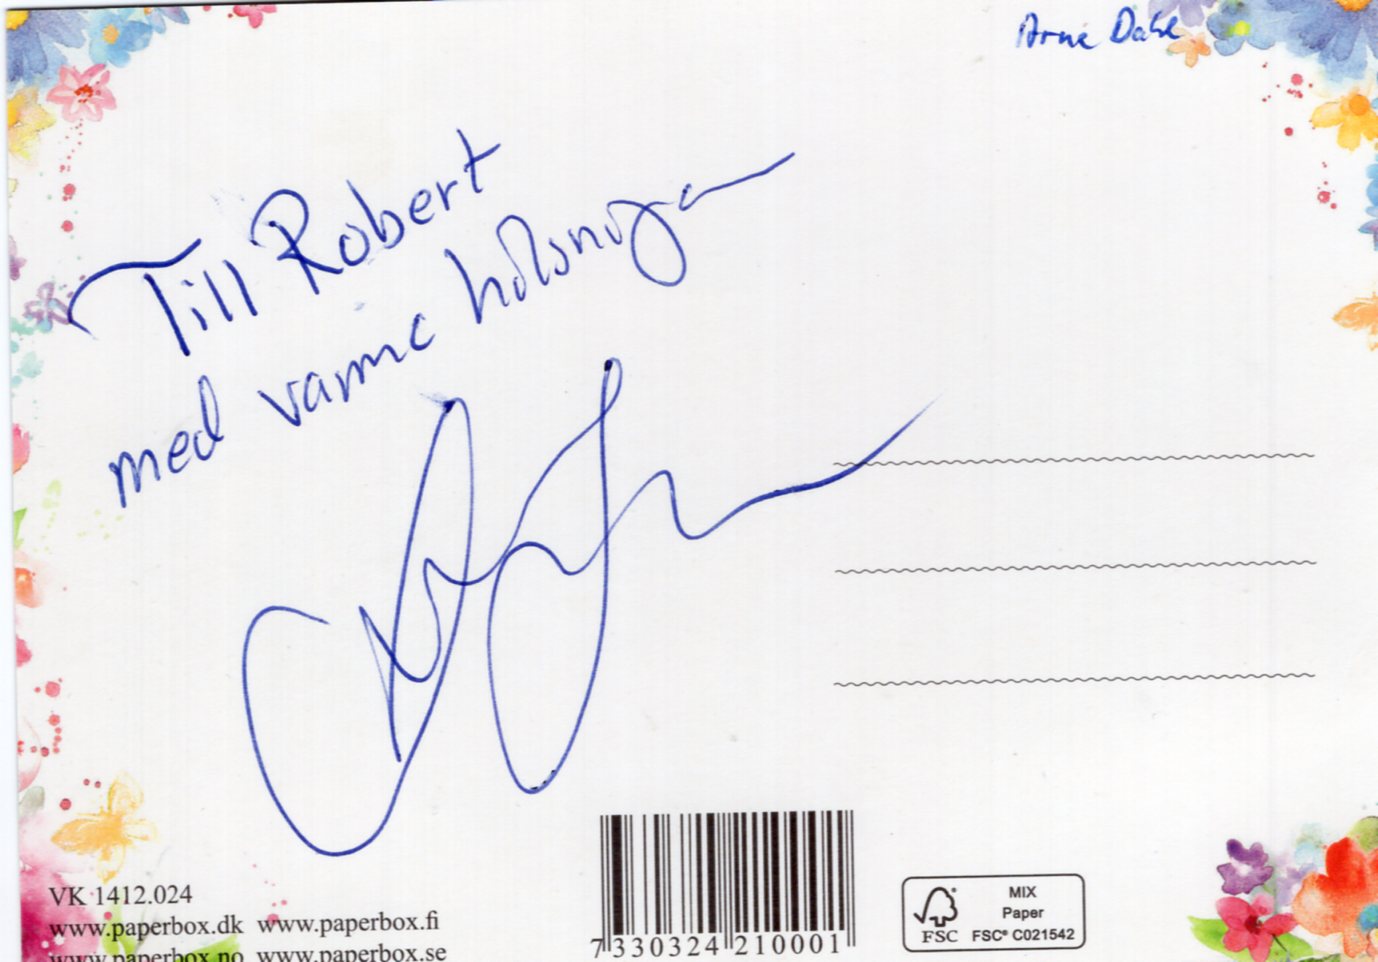 Arne Dahl
Till Robert
med varma hälsningar
VK 1412.024
www.paperbox.dk www.paperbox.fi
www.paperbox.no www.paperbox.se
7 330324 210001
MIX
Paper
FSC
FSC® C021542